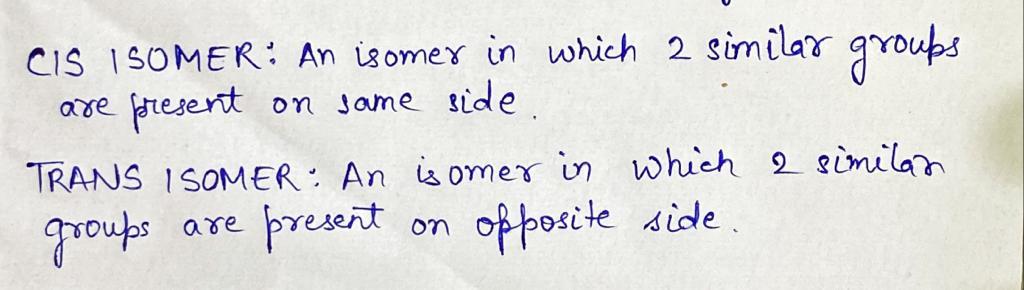 CIS ISOMER: An isomer in which 2 similar groups
are present on same side.
TRANS ISOMER: An isomer in which 2 similar
groups are present on opposite side.